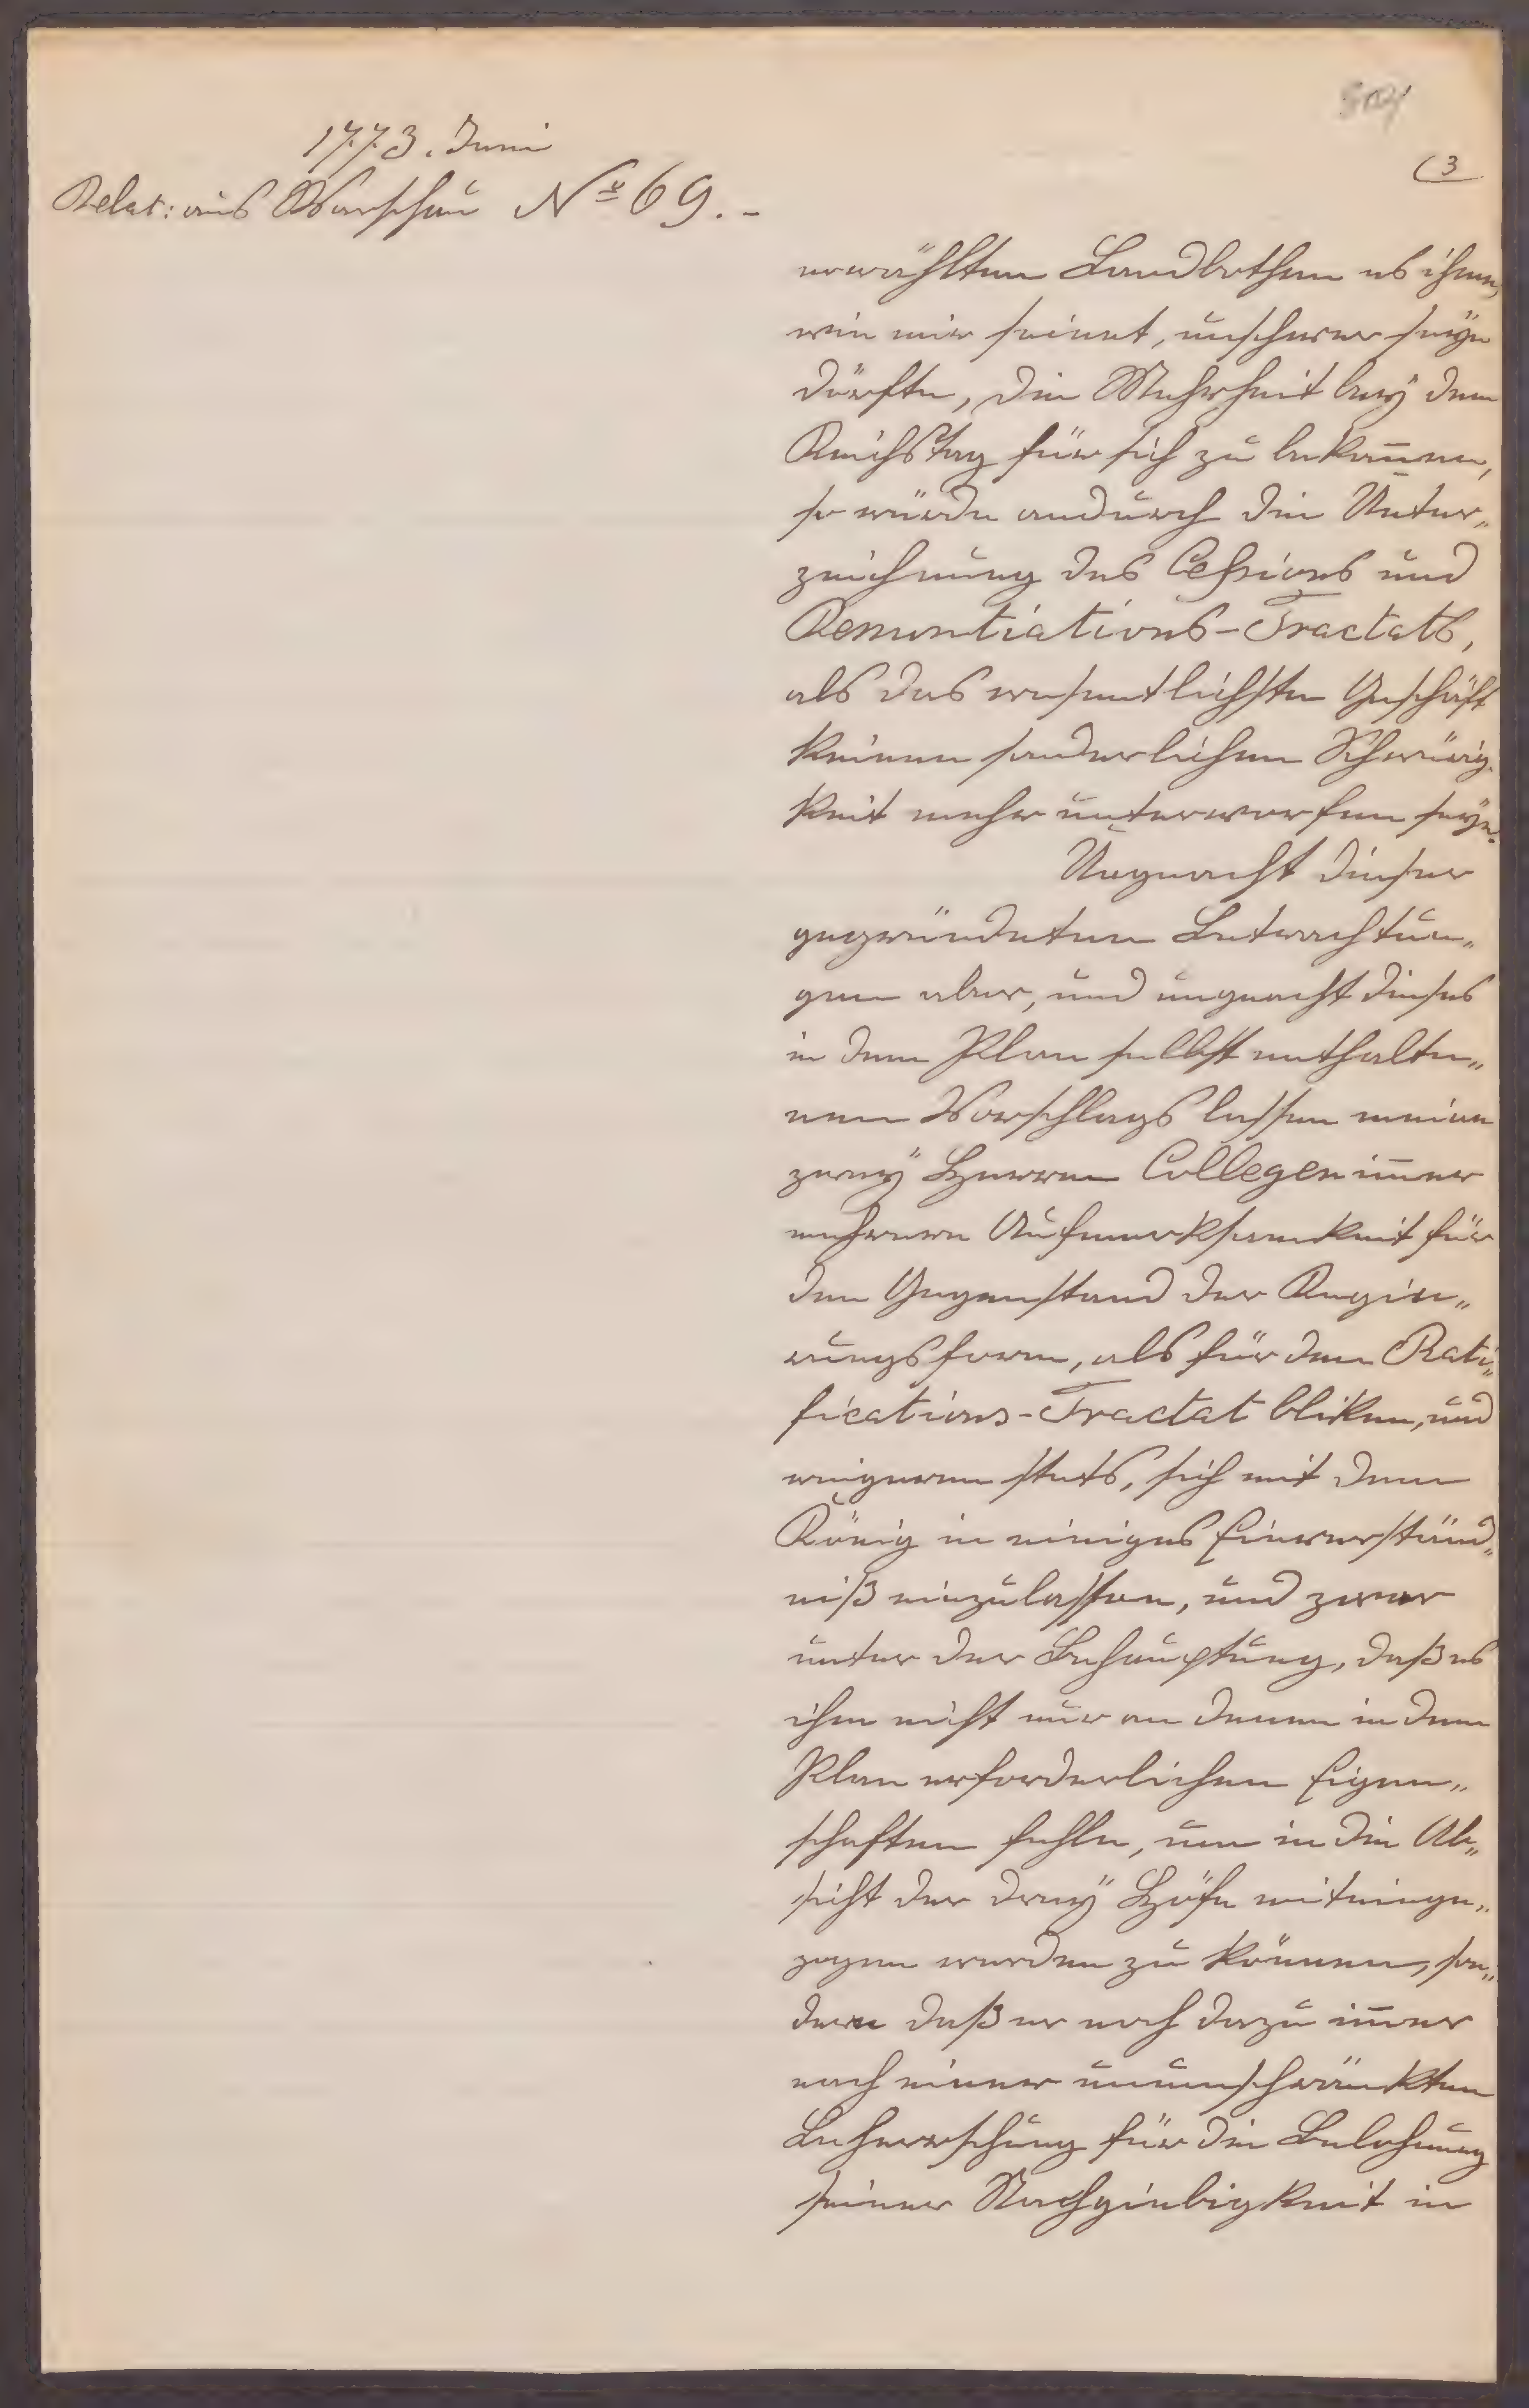 1773. Juni
Relat: aus Warschau No 69.-
(3
erwählten Landbothen es ihnen,
wie mir scient, unschwer seÿn
dörfte, die Mehrheit beÿ dem
Reichstag für sich zu bekom̄en,
so würde andurch die Unter„
zeichnung des Cessions und
Renuntiations-Tractats,
als das wesentlichste Geschäft
keinen sonderlichen Schwürig„
keit mehr unterworfen seÿn.
Ungeacht dieser
gegründeten Betrachtun„
gen aber, und ungeacht dieses
in dem Plan selbst enthalte„
nen Vorschlags lassen meine
zweÿ Herren Collegen im̄er
mehrere Aufmerksamkeit für
den Gegenstand der Regie„
rungsform, als für den Rati„
fications-Tractat bliken, und
weigeren stets, sich mit dem
König in einiges Einverständ„
niß einzulassen, und zwar
unter der Behauptung, daß es
ihm nicht nur an denen in dem
Plan erforderlichen Eigen„
schaften fehle, um in die Ab„
sicht der dreÿ Höfe miteinge„
zogen werden zu können, son„
dern daß er noch dazu im̄er
nach einer unumschränkten
Beherrschung für die Belohnung
seiner Nachgiebigkeit in